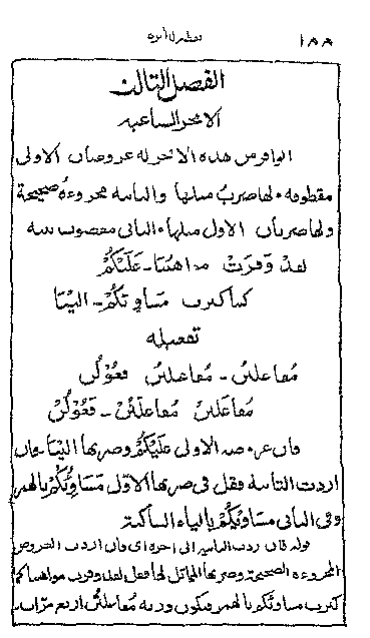 ١٨٨
الفصل الثالث
الابحر السباعية
الوافر من هذه الابحر له عروضان الاولى
مقطوفة ولها ضرب مثلها والثانية مجزوءة صحيحة
ولها ضربان الاول مثلها والثاني معصوب بيته
لقدْ وَفَرَتْ مواهبنا - عَلَيْكُمْ
كما كثرت مَسَاوِئكُمْ - الينَا
تفعيله
مُفاعلتن - مُفاعلتن فعُولُن
مُفاعَلَتن مُفاعلَتُنْ - فَعُوْلُنْ
فان عروضه الاولى عَلَيْكُمْ وضربها الينَا - وان
اردت الثانية فقل في ضربها الاوّل مَسَاوِئُكُمْ بالهمز
وفي الثاني مسَاوِيْكُمْ بالياء الساكنة
قوله فان اردت الثانية الى اخره اي فان اردت العروض
المجزوءة الصحيحة وضربها المماثل لها فقل لقد وفرت مواهبنا كما
كثرت مساوئكم بالهمز فيكون وزنه مُفاعلتُن اربع مرّات